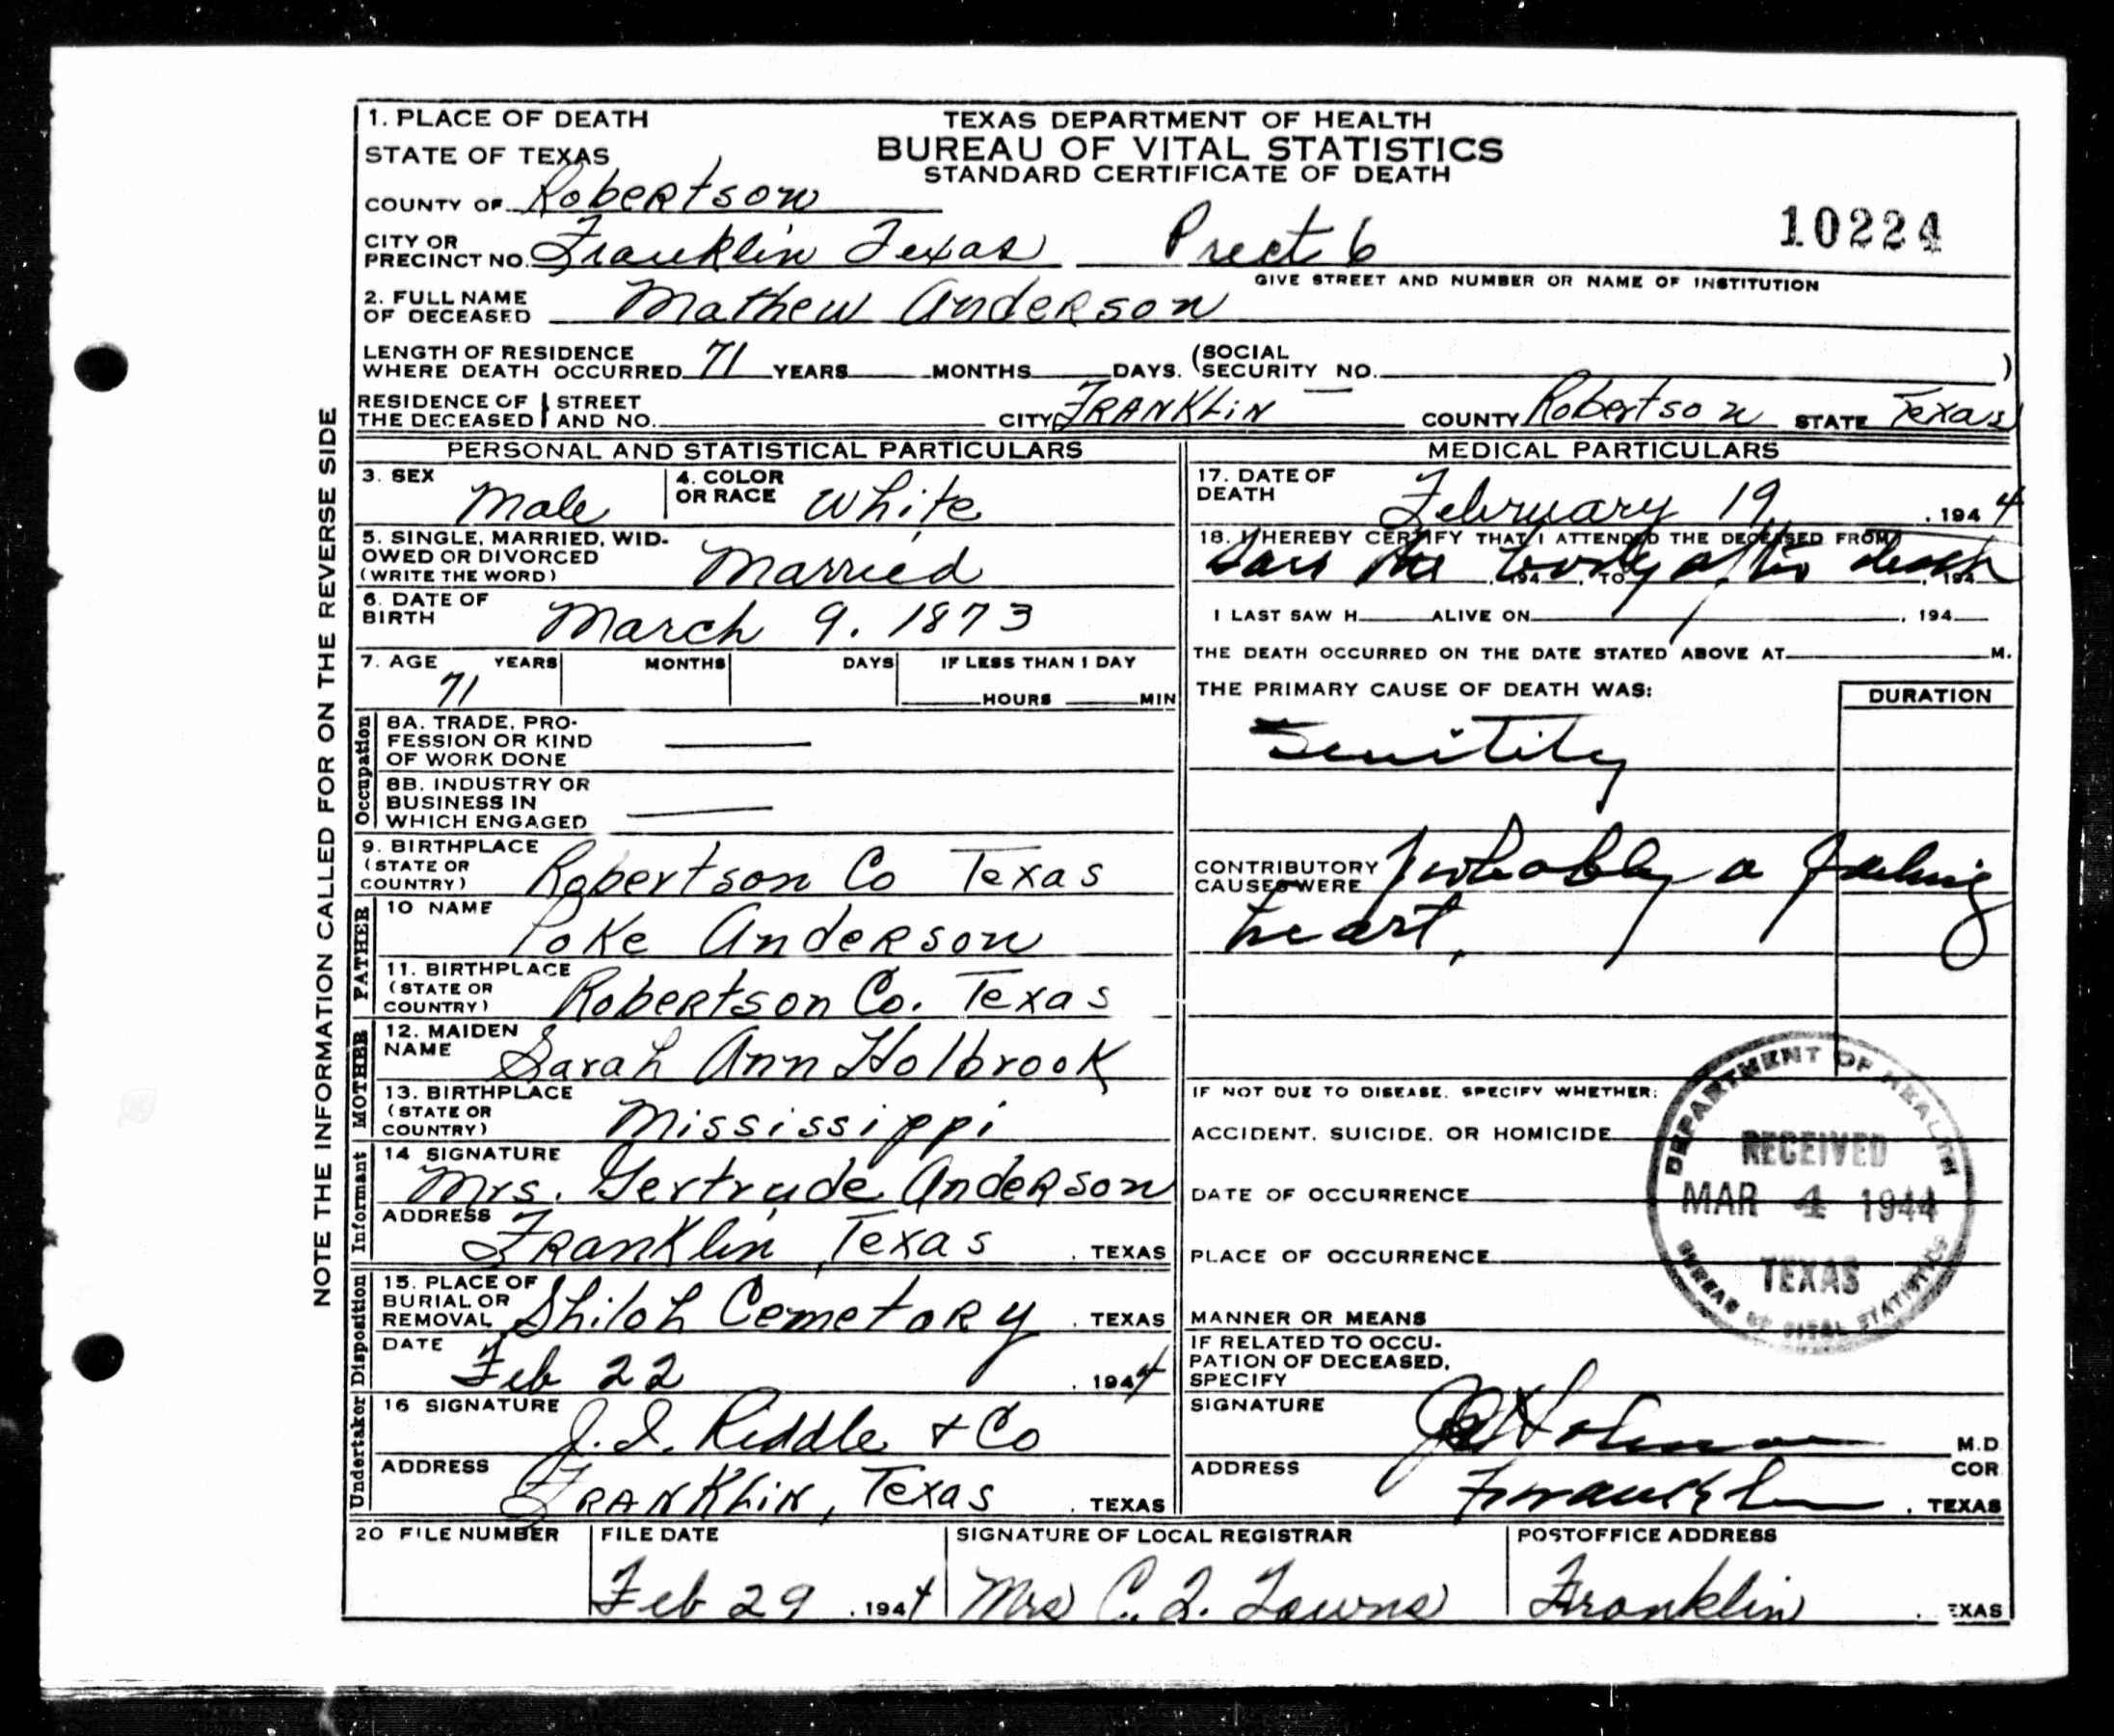 1. PLACE OF DEATH
STATE OF TEXAS
TEXAS DEPARTMENT OF HEALTH
BUREAU OF VITAL STATISTICS
STANDARD CERTIFICATE OF DEATH
COUNTY OF Robertson
10224
CITY OR PRECINCT NO. Franklin Texas Prect 6
GIVE STREET AND NUMBER OR NAME OF INSTITUTION
2. FULL NAME OF DECEASED Mathew Anderson
LENGTH OF RESIDENCE WHERE DEATH OCCURRED 71 YEARS MONTHS DAYS. (SOCIAL SECURITY NO. )
RESIDENCE OF THE DECEASED STREET AND NO. CITY FRANKLIN COUNTY Robertson STATE Texas
NOTE THE INFORMATION CALLED FOR ON THE REVERSE SIDE
PERSONAL AND STATISTICAL PARTICULARS
3. SEX Male 4. COLOR OR RACE White
5. SINGLE, MARRIED, WIDOWED OR DIVORCED (WRITE THE WORD) Married
6. DATE OF BIRTH March 9. 1873
7. AGE YEARS MONTHS DAYS IF LESS THAN 1 DAY
71 HOURS MIN
Occupation
8A. TRADE, PROFESSION OR KIND OF WORK DONE
8B. INDUSTRY OR BUSINESS IN WHICH ENGAGED
9. BIRTHPLACE (STATE OR COUNTRY) Robertson Co Texas
FATHER
10 NAME Poke Anderson
11. BIRTHPLACE (STATE OR COUNTRY) Robertson Co. Texas
MOTHER
12. MAIDEN NAME Sarah Ann Holbrook
13. BIRTHPLACE (STATE OR COUNTRY) Mississippi
Informant
14 SIGNATURE Mrs. Gertrude Anderson
ADDRESS Franklin, Texas . TEXAS
Disposition
15. PLACE OF BURIAL OR REMOVAL Shiloh Cemetory . TEXAS
DATE Feb 22 . 1944
Undertaker
16 SIGNATURE J. I. Riddle + Co
ADDRESS FRANKLIN, Texas . TEXAS
MEDICAL PARTICULARS
17. DATE OF DEATH February 19, . 1944
18. I HEREBY CERTIFY THAT I ATTENDED THE DECEASED FROM
Saw the body after death
, 194 , TO , 194
I LAST SAW H ALIVE ON , 194
THE DEATH OCCURRED ON THE DATE STATED ABOVE AT M.
THE PRIMARY CAUSE OF DEATH WAS: DURATION
CONTRIBUTORY CAUSES WERE probably a failing
heart.
IF NOT DUE TO DISEASE, SPECIFY WHETHER:
ACCIDENT, SUICIDE, OR HOMICIDE
DATE OF OCCURRENCE
PLACE OF OCCURRENCE
MANNER OR MEANS
IF RELATED TO OCCUPATION OF DECEASED, SPECIFY
DEPARTMENT OF HEALTH
RECEIVED
MAR 4 1944
TEXAS
BUREAU OF VITAL STATISTICS
SIGNATURE M.D
COR
ADDRESS Franklin . TEXAS
20 FILE NUMBER FILE DATE SIGNATURE OF LOCAL REGISTRAR POSTOFFICE ADDRESS
Feb 29 . 1944 Mrs C. I. Towns Franklin . EXAS